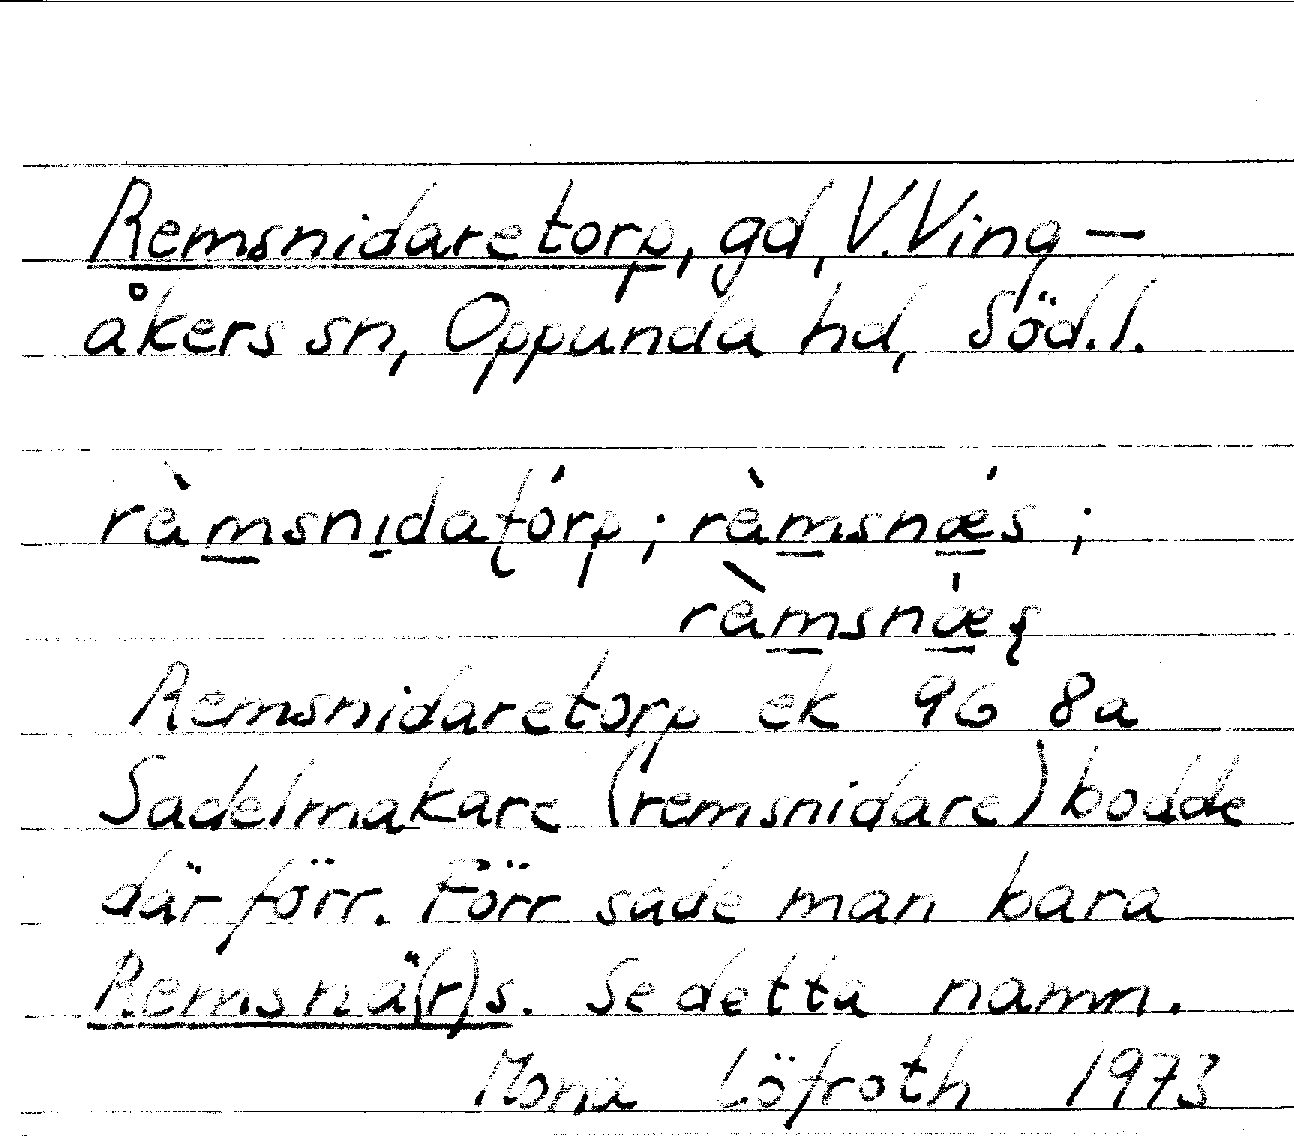 Remsnidaretorp, gd, V. Ving–
åkers sn, Oppunda hd, Söd. l.
rèmsnidaƫórp; rèmsnǽs;
rèmsnǽʂ
Remsnidaretorp ek 9G 8a
Sadelmakare (remsnidare) bodde
där förr. Förr sade man bara
Remsnä(r)s. Se detta namn.
Mona Löfroth 1973